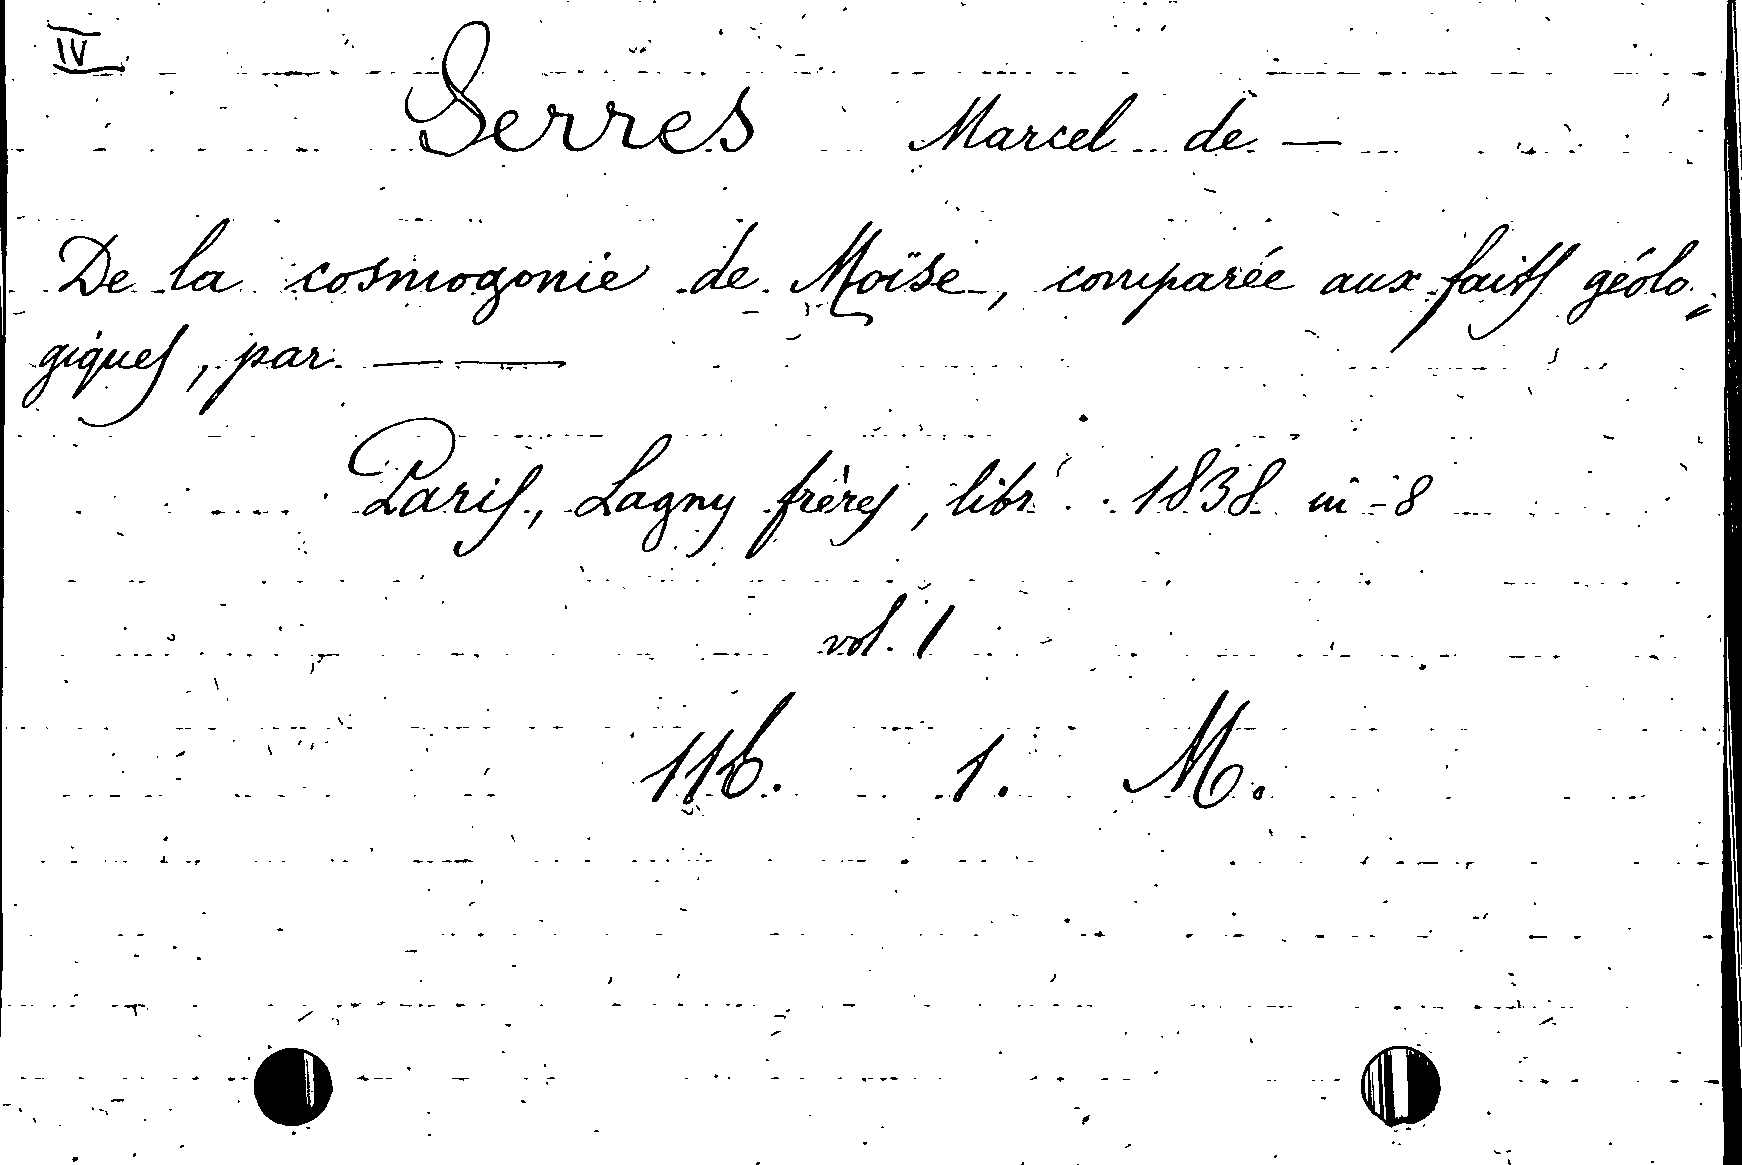 IV
Serres Marcel de —
De la cosmogonie de Moïse, comparée aux faits géolo=
giques, par — —
Paris, Lagny frères, libr. 1838 in-8
vol. 1
116. 1. M.